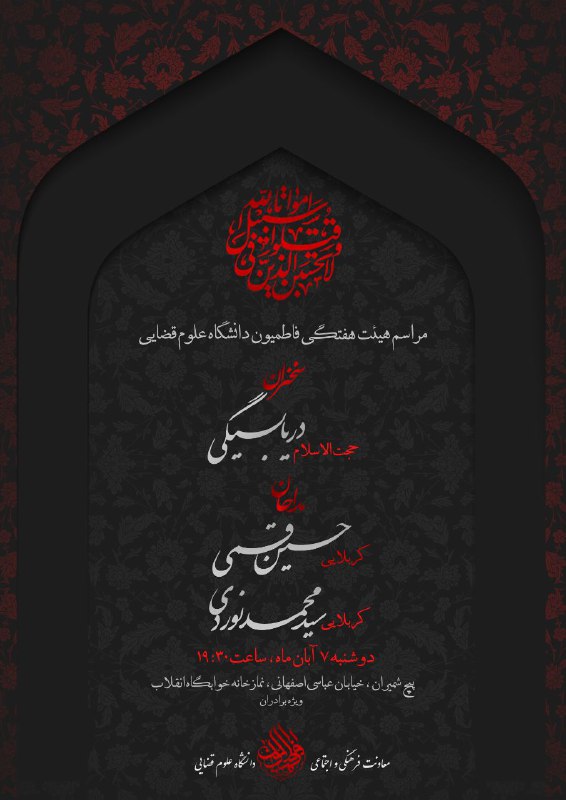 ولا تحسبن الذین قتلوا فی سبیل الله امواتا
مراسم هیئت هفتگی فاطمیون دانشگاه علوم قضایی
سخنران
حجت الاسلام دریابیگی
مداحان
کربلایی حسین قمی
کربلایی سید محمد نوردی
دوشنبه ۷ آبان ماه، ساعت ۱۹:۳۰
پیچ شمیران، خیابان عباسی اصفهانی، نمازخانه خوابگاه انقلاب
ویژه برادران
معاونت فرهنگی و اجتماعی دانشگاه علوم قضایی